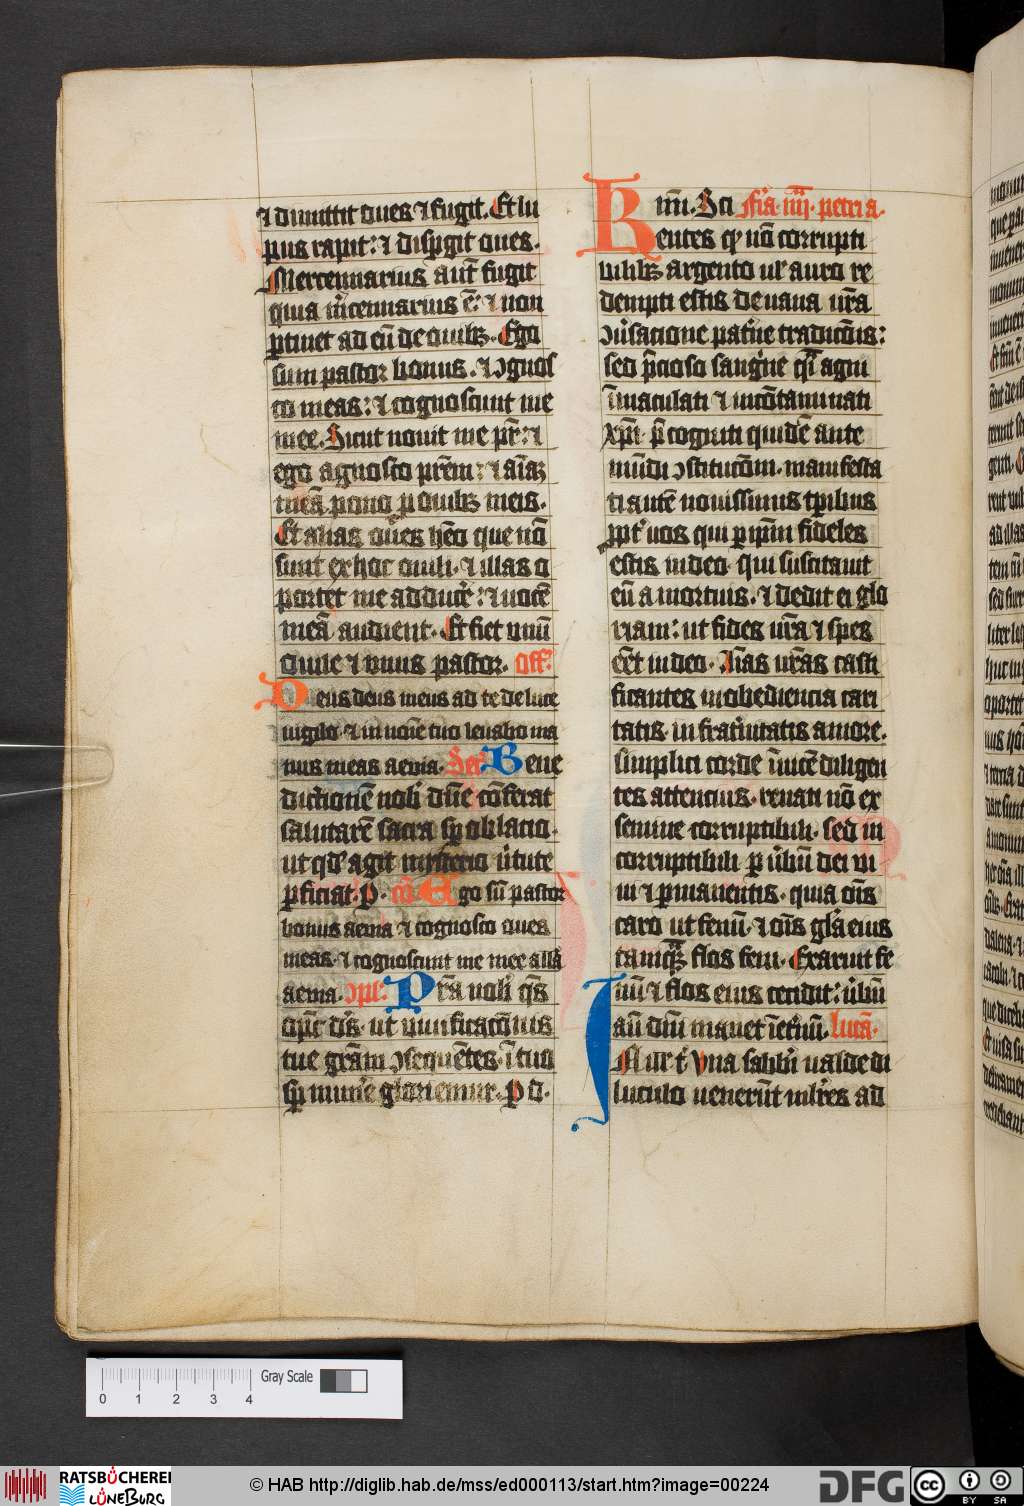 ⁊ dimittit oues ⁊ fugit. Et lu
pus rapit: ⁊ dispgit oues.
Mercennarius aut̄ fugit
quia m̄cennarius ē: ⁊ non
ꝑtinet ad eū de ouibꝫ. Ego
sum pastor bonus. ⁊ ꝯgnos
co meas: ⁊ cognoscunt me
mee. Sicut nouit me pr̄: ⁊
ego agnosco prēm: ⁊ aīaꝫ
meā pono ꝓ ouibꝫ meis.
Et alias oues hēo que nō
sunt ex hoc ouili. ⁊ illas o
portet me adducē: ⁊ uocē
meā audient. Et fiet unū
ouile ⁊ unus pastor. Off.
Deus deus meus ad te de luce
uigilo ⁊ in noīe tuo leuabo ma
nus meas aeuia. Secͬ Bene
dictionē nob̄ dn̄e cōferat
salutarē sacra sp̄ oblacio.
ut qd̓ agit misterio ūtute
ꝑficiat. P. cō Ego sū pastor
bonus aeuia ⁊ cognosco oues
meas. ⁊ cognoscunt me mee all̄a
aeuia. ꝯpl. Prā nob̄ qs̄
om̄pc d̄s. ut uiuificacōnis
tue grām ꝯsequētes. ī tuo
sp̄ mun̄e gloriemur. P d.
Rīm. Sci Fīa. iiij. petri a.
entes qꝫ nō corrupti
bilibꝫ argento ul̓ auro re
dempti estis de uana ūra
ꝯūsacione pat̄ne tradicōis:
sed p̄cioso sangīne qͣsi agni
īmaculati ⁊ incōtaminati
xp̄i. p̄cogniti quidē ante
mūdi ꝯstitucōm. manifesta
ti autē nouissimis tꝑibus
ꝓpt̄ uos qui ꝑ ipm̄ fideles
estis in deo. qui suscitauit
eū a mortuis. ⁊ dedit ei glo
riam: ut fides ūra ⁊ spes
eēt in deo. Aīas ūras casti
ficantes in obediencia cari
tatis. in frat̄nitatis amore.
simplici corde īuicē diligen
tes attencius. renati nō ex
semine corruptibili. sed in
corruptibili ꝑ ūbū dei ui
ui ⁊ ꝑmanentis. quia oīs
caro ut fenū. ⁊ oīs glā eius
tamqͣꝫ flos feni. Exaruit fe
nū ⁊ flos eius cecidit: ūbū
aū dn̄i manet ī et̄nū. lucā.
In ill̄ t̄. Vna sabbī ualde di
luculo uenerūt mlīes ad
0 1 2 3 4
Gray Scale
RATSBÜCHEREI
LÜNEBURG
© HAB http://diglib.hab.de/mss/ed000113/start.htm?image=00224
DFG
cc BY SA